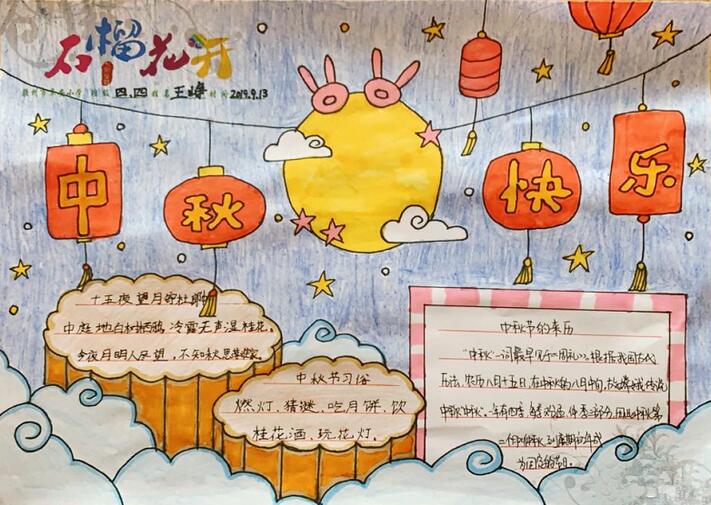 石榴花开
小学 班级 四.四 姓名 王 时间 2019.9.13
中秋快乐
十五夜望月寄杜郎
中庭地白树栖鸦,冷露无声湿桂花。
今夜月明人尽望,不知秋思落谁家
中秋节习俗
燃灯、猜谜、吃月饼、饮
桂花酒、玩花灯。
中秋节的来历
"中秋"一词最早见于《周礼》,根据我国古代
历法,农历八月十五日,在中秋的八月中旬,故
中秋 一年有四季
为固定的节日。